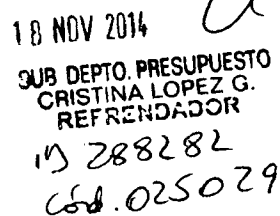 18 NOV 2014
SUB DEPTO. PRESUPUESTO
CRISTINA LOPEZ G.
REFRENDADOR
ID 288282
Cód. 025029